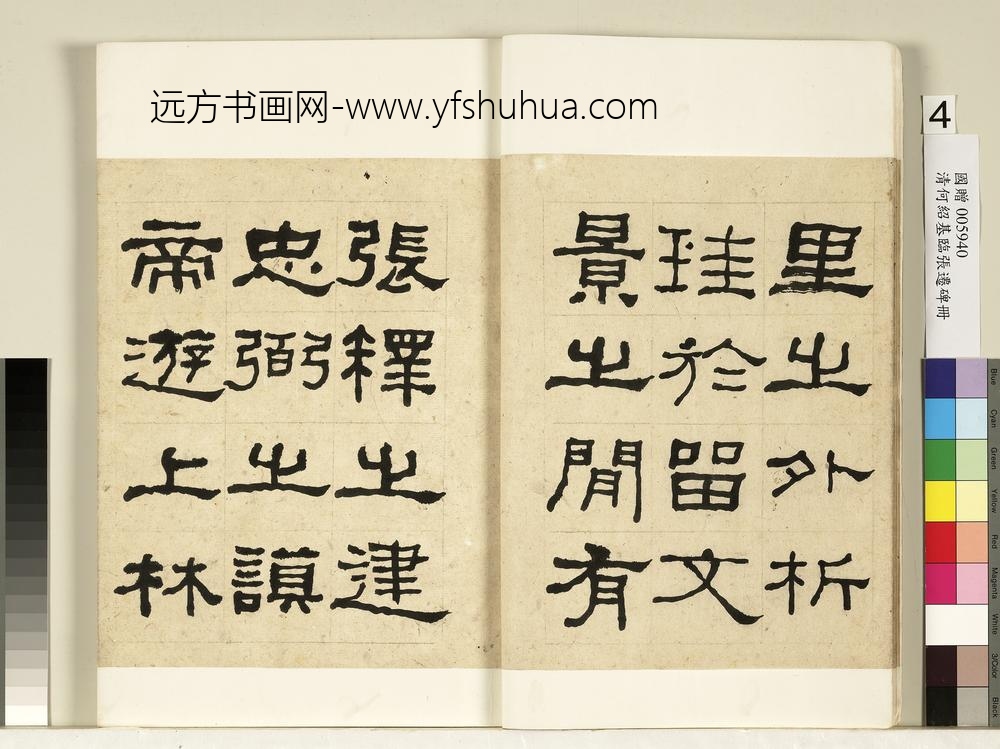 远方书画网-www.yfshuhua.com
里之外析
珪於留文
景之閒有
張釋之建
忠弼之謨
帝遊上林
4
國贈 005940
清何紹基臨張遷碑冊
Blue
Cyan
Green
Yellow
Red
Magenta
White
3/Color
Black